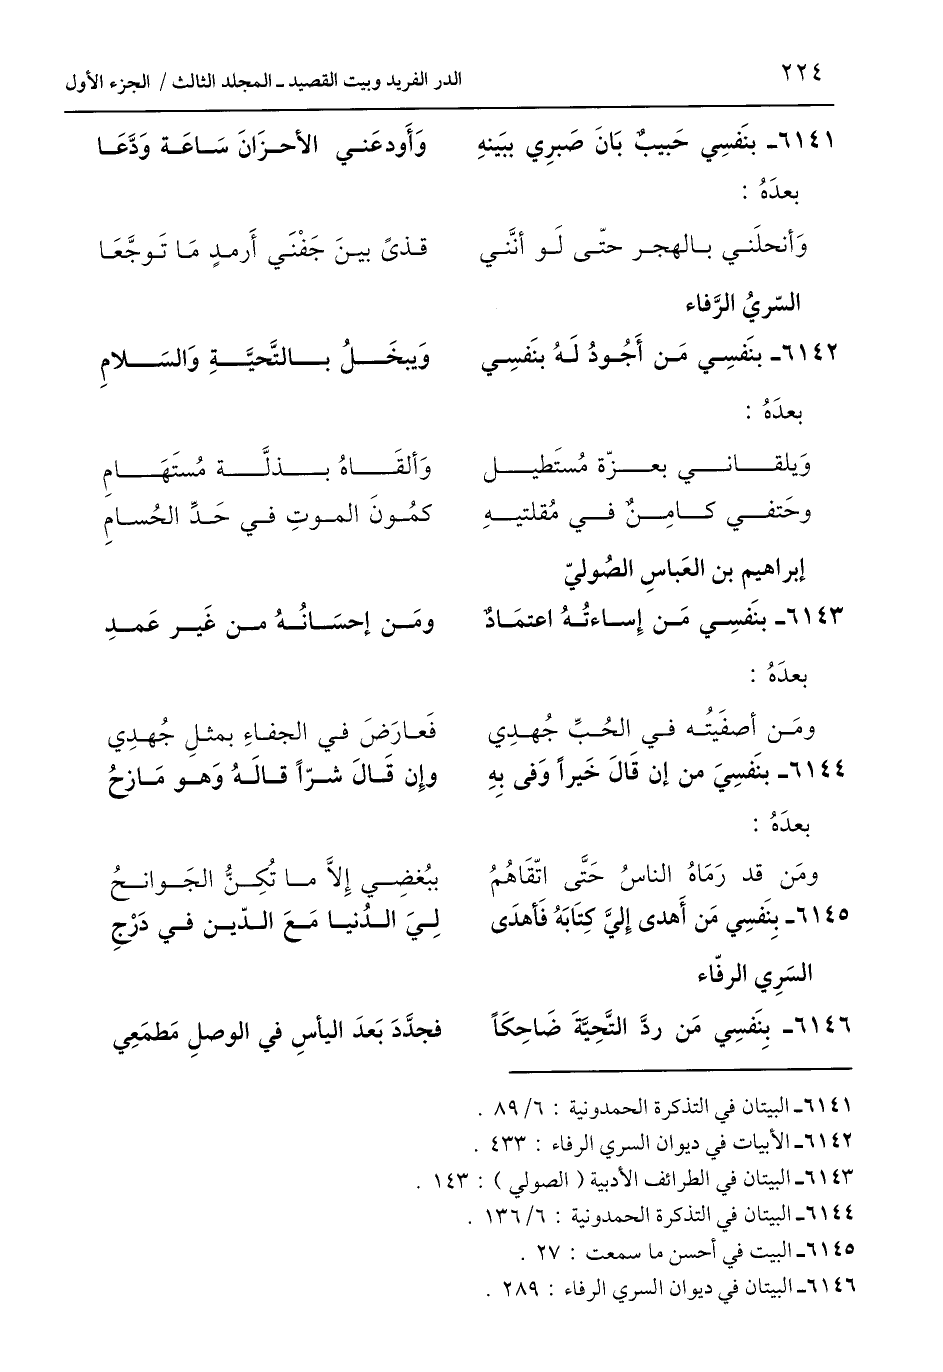 ٢٢٤ الدر الفريد وبيت القصيد ـ المجلد الثالث / الجزء الأول
٦١٤١ـ بنَفسِي حَبيبٌ بَانَ صَبرِي ببَينهِ وَأَودعَنـي الأحـزَانَ سَـاعَـة وَدَّعَـا
بعدَهُ :
وَأنحلَنـي بـالهجـر حتّـى لَـو أنَّنـي قـذىً بيـنَ جَفْنَي أَرمـدٍ مَـا تَـوجَّعَـا
السّريُ الرَّفاء
٦١٤٢ـ بنَفسِـي مَـن أَجُـودُ لَـهُ بنَفسِـي وَيبخَـــلُ بـــالتَّحيَّـــةِ وَالسَـــلامِ
بعدَهُ :
وَيلقـــانـــي بعـــزّة مُستَطيـــل وَألقَـــاهُ بـــذلَّـــة مُستَهَـــامِ
وحَتفـــي كـــامِـــنٌ فـــي مُقلتيـــهِ كمُـونَ المـوتِ فـي حَـدِّ الحُسـامِ
إبراهيم بن العَباسِ الصُوليّ
٦١٤٣ـ بنَفسِـي مَـن إسـاءتُـهُ اعتمَـادٌ ومَـن إحسَـانُـهُ مـن غَيـر عَمـدِ
بعدَهُ :
ومَـن أصفَيتُـه فـي الحُـبِّ جُهدِي فَعـارَضَ فـي الجفـاءِ بمثـلِ جُهـدِي
٦١٤٤ـ بنَفسِيَ من إن قَالَ خَيراً وَفى بِهِ وإن قَـالَ شـرّاً قـالَـهُ وَهـو مَـازحُ
بعدَهُ :
ومَن قد رَمَاهُ الناسُ حَتَّى اتّقَاهُمُ ببُغضِـي إلاَّ مـا تُكِـنُّ الجَـوانـحُ
٦١٤٥ـ بِنَفسِي مَن أَهدى إليَّ كِتَابَهُ فَأهدَى لِـيَ الـدُنيـا مَـعَ الـدّيـن فـي دَرْجِ
السَرِي الرفّاء
٦١٤٦ـ بِنَفسِي مَن ردَّ التَّحِيَّةَ ضَاحِكَاً فجدَّدَ بَعدَ اليأسِ في الوصلِ مَطمَعِي
٦١٤١ـ البيتان في التذكرة الحمدونية : ٦/ ٨٩ .
٦١٤٢ـ الأبيات في ديوان السري الرفاء : ٤٣٣ .
٦١٤٣ـ البيتان في الطرائف الأدبية ( الصولي ) : ١٤٣ .
٦١٤٤ـ البيتان في التذكرة الحمدونية : ٦/ ١٣٦ .
٦١٤٥ـ البيت في أحسن ما سمعت : ٢٧ .
٦١٤٦ـ البيتان في ديوان السري الرفاء : ٢٨٩ .